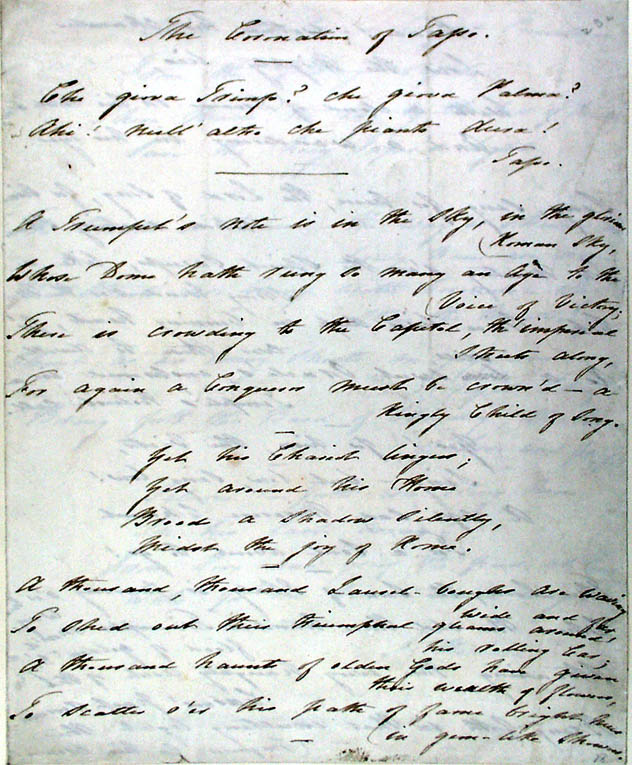 The Coronation of Tasso.
Che giova Trionf? che giova Palma?
Ahi! null' altro che pianto dura!
Tasso.
A Trumpet's note is in the sky, in the glorious
(Roman sky,
Whose Dome hath rung so many an age to the
(Voice of Victory;
There is crowding to the Capitol, the imperial
Streets along,
For again a Conqueror must be crown'd – a
Kingly Child of Song.
Yet his Chariot lingers;
Yet around his Home
Broods a shadow silently,
Midst the joy of Rome.
A thousand, thousand Laurel-boughs are waving
wide and far,
To shed out their triumphal gleams around
his rolling Car;
A thousand haunts of olden Gods have given
their wealth of flowers,
To scatter o'er his path of fame bright hues
(in gem-like showers.